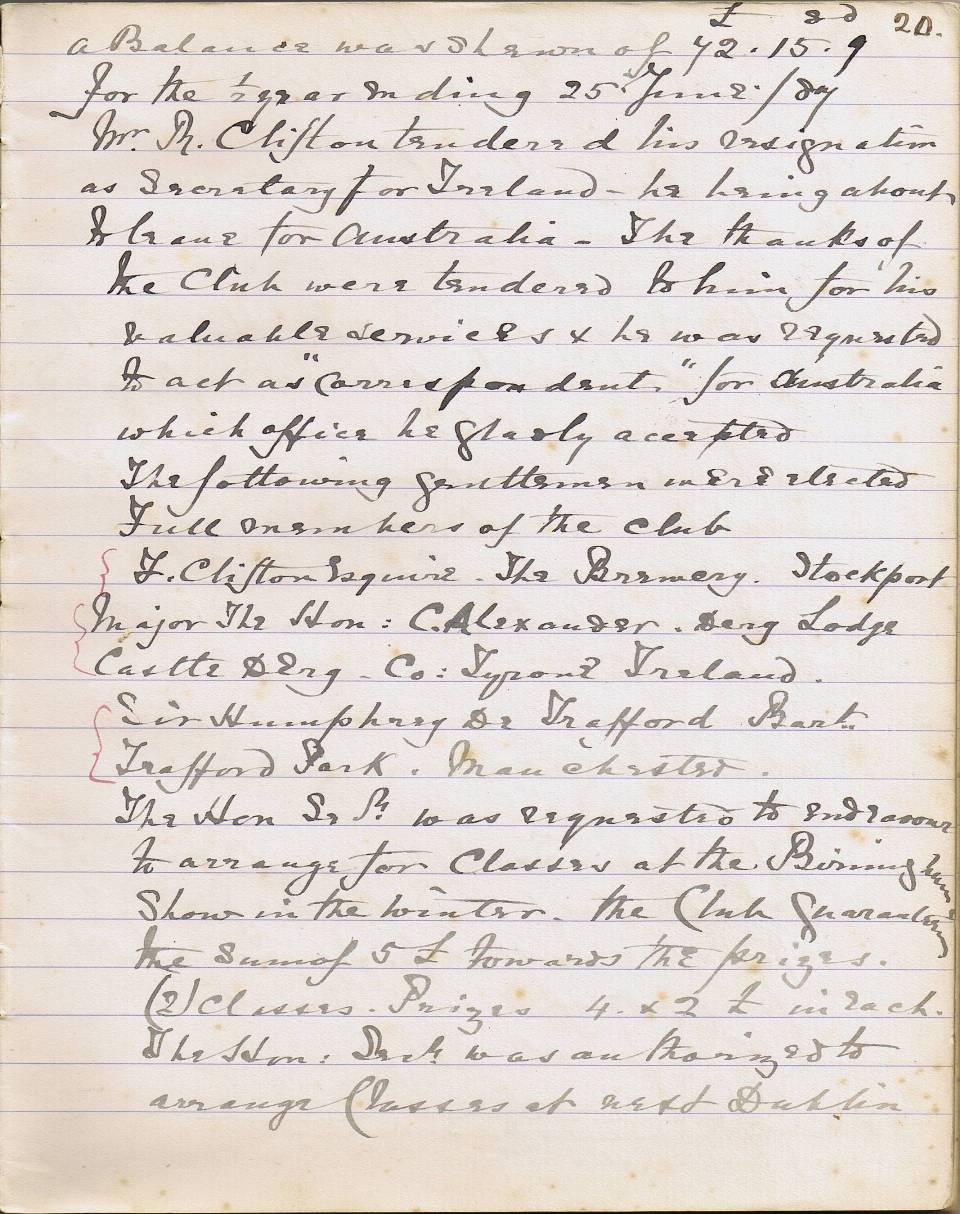 20.
£ s d
a Balance was shewn of 42.15.9
for the ½ year ending 25 June /89
Mr. R. Clifton tendered his resignation
as Secretary for Ireland - he being about
to leave for Australia - The thanks of
the Club were tendered to him for his
valuable services & he was requested
to act as "Correspondent" for Australia
which office he gladly accepted
The following gentlemen were elected
Full members of the club
F. Clifton Esquire - The Brewery. Stockport
Major The Hon: C. Alexander. Derg Lodge
Castle Derg - Co: Tyrone Ireland.
Sir Humphrey De Trafford Bart.
Trafford Park. Manchester.
The Hon Sec. was requested to endeavour
to arrange for Classes at the Birmingham
Show in the Winter. the Club Guaranteeing
the Sum of 5 £ towards the prizes.
(2) Classes. Prizes 4. & 2 £ in each.
The Hon: Sec. was authorized to
arrange Classes at next Dublin